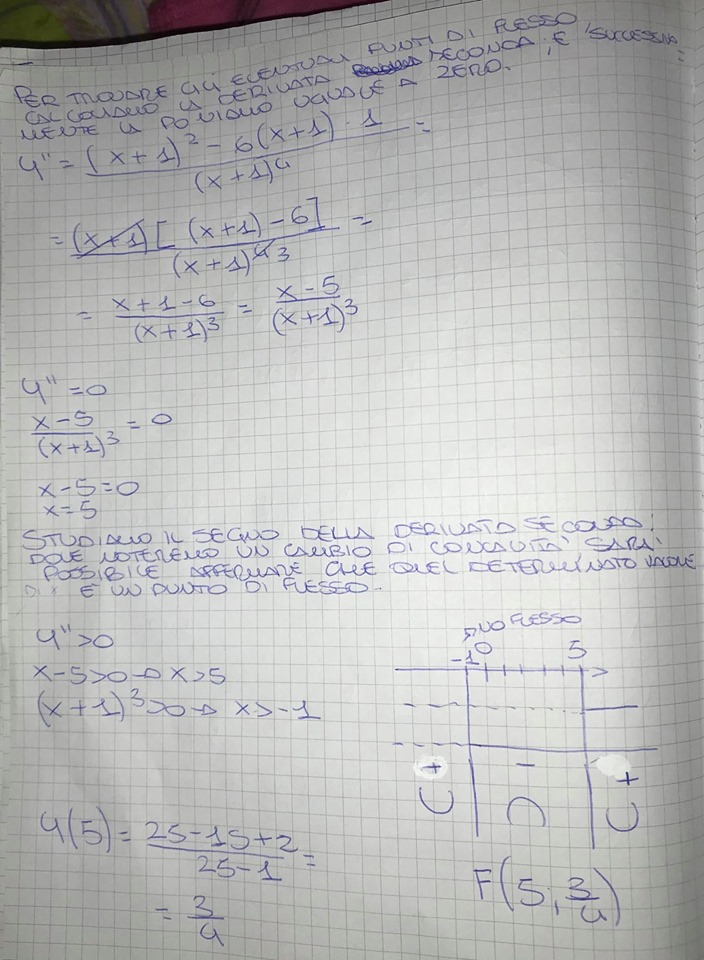 PER TROVARE GLI EVENTUALI PUNTI DI FLESSO
CALCOLIAMO LA DERIVATA SECONDA; E SUCCESSIVA-
MENTE LA PONIAMO UGUALE A ZERO.
y'' = ((x+1)² - 6(x+1) · 1)/(x+1)⁴ =
= (x+1)[(x+1) - 6]/(x+1)⁴ ³ =
= (x+1-6)/(x+1)³ = (x-5)/(x+1)³
y'' = 0
(x-5)/(x+1)³ = 0
x-5=0
x=5
STUDIAMO IL SEGNO DELLA DERIVATA SECONDA:
DOVE NOTEREMO UN CAMBIO DI CONCAVITÀ SARÀ
POSSIBILE AFFERMARE CHE QUEL DETERMINATO VALORE
DI x È UN PUNTO DI FLESSO.
y''>0
x-5>0 → x>5
(x+1)³>0 → x>-1
NO FLESSO
-1 0 5
+ - +
y(5) = (25-15+2)/(25-1) =
= 3/4
F(5; 3/4)